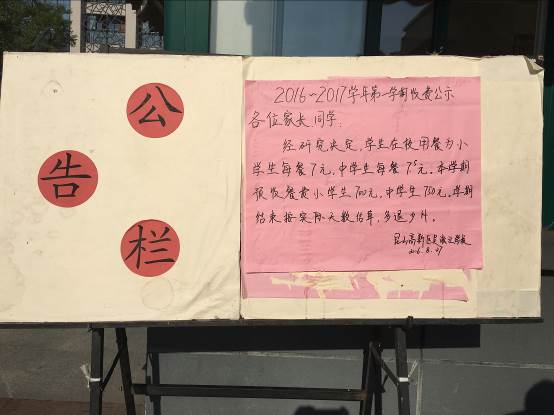 公
告
栏
2016~2017学年第一学期收费公示
各位家长、同学:
经研究决定,学生在校用餐为小
学生每餐7元,中学生每餐7.5元。本学期
预收餐费小学生700元,中学生750元。学期
结束按实际天数结算,多退少补。
昆山高新区
2016.8.27